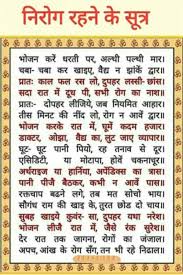 निरोग रहने के सूत्र
भोजन करें धरती पर, अल्थी पल्थी मार।
चबा-चबा कर खाइए, वैद्य न झांकें द्वार।।
प्रातः काल फल रस लो, दुपहर लस्सी-छांस।
सदा रात में दूध पी, सभी रोग का नाश।।
प्रातः- दोपहर लीजिये, जब नियमित आहार।
तीस मिनट की नींद लो, रोग न आवें द्वार।।
भोजन करके रात में, घूमें कदम हजार।
डाक्टर, ओझा, वैद्य का, लुट जाए व्यापार।।
घूट-घूट पानी पियो, रह तनाव से दूर।
एसिडिटी, या मोटापा, होवें चकनाचूर।।
अर्थराइज या हार्निया, अपेंडिक्स का त्रास।
पानी पीजै बैठकर, कभी न आवें पास।।
रक्तचाप बढने लगे, तब मत सोचो भाय।
सौगंध राम की खाइ के, तुरत छोड दो चाय।।
सुबह खाइये कुवंर-सा, दुपहर यथा नरेश।
भोजन लीजै रात में, जैसे रंक सुरेश।।
देर रात तक जागना, रोगों का जंजाल।
अपच, आंख के रोग सँग, तन भी रहे निढाल।।